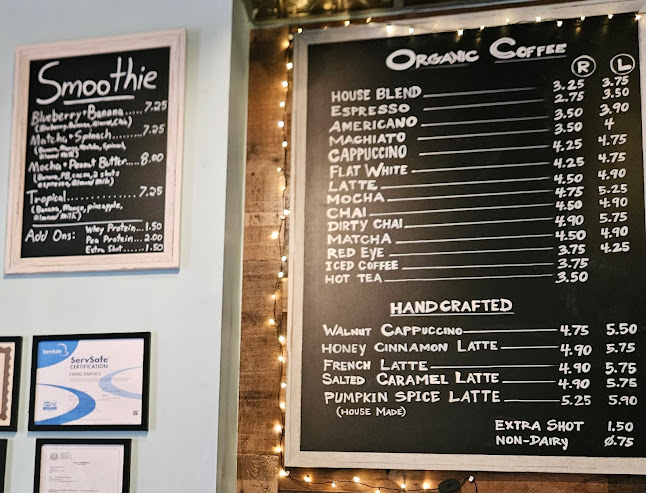 Smoothie
Blueberry + Banana 7.25
(Blueberry, Banana, Almond, Chia)
Matcha + Spinach...... 7.25
(Banana, Mango, Matcha, Spinach, Almond Milk)
Mocha + Peanut Butter... 8.00
(Banana, PB, cacao, 2 shots
espresso, Almond Milk)
Tropical 7.25
(Banana, Mango, pineapple,
Almond Milk)
Add Ons: Whey Protein... 1.50
Pea Protein... 2.00
Extra Shot...... 1.50
ServSafe
ServSafe
CERTIFICATION
ORGANIC COFFEE
R L
HOUSE BLEND 3.25 3.75
ESPRESSO 2.75 3.50
AMERICANO 3.50 3.90
MAGHIATO 3.50 4
CAPPUCCINO 4.25 4.75
FLAT WHITE 4.25 4.75
LATTE 4.50 4.90
MOCHA 4.75 5.25
CHAI 4.50 4.90
DIRTY CHAI 4.90 5.75
MATCHA 4.50 4.90
RED EYE 3.75 4.25
ICED COFFEE 3.75
HOT TEA 3.50
HANDCRAFTED
WALNUT CAPPUCCINO 4.75 5.50
HONEY CINNAMON LATTE 4.90 5.75
FRENCH LATTE 4.90 5.75
SALTED CARAMEL LATTE 4.90 5.75
PUMPKIN SPICE LATTE 5.25 5.90
(HOUSE MADE)
EXTRA SHOT 1.50
NON-DAIRY 0.75